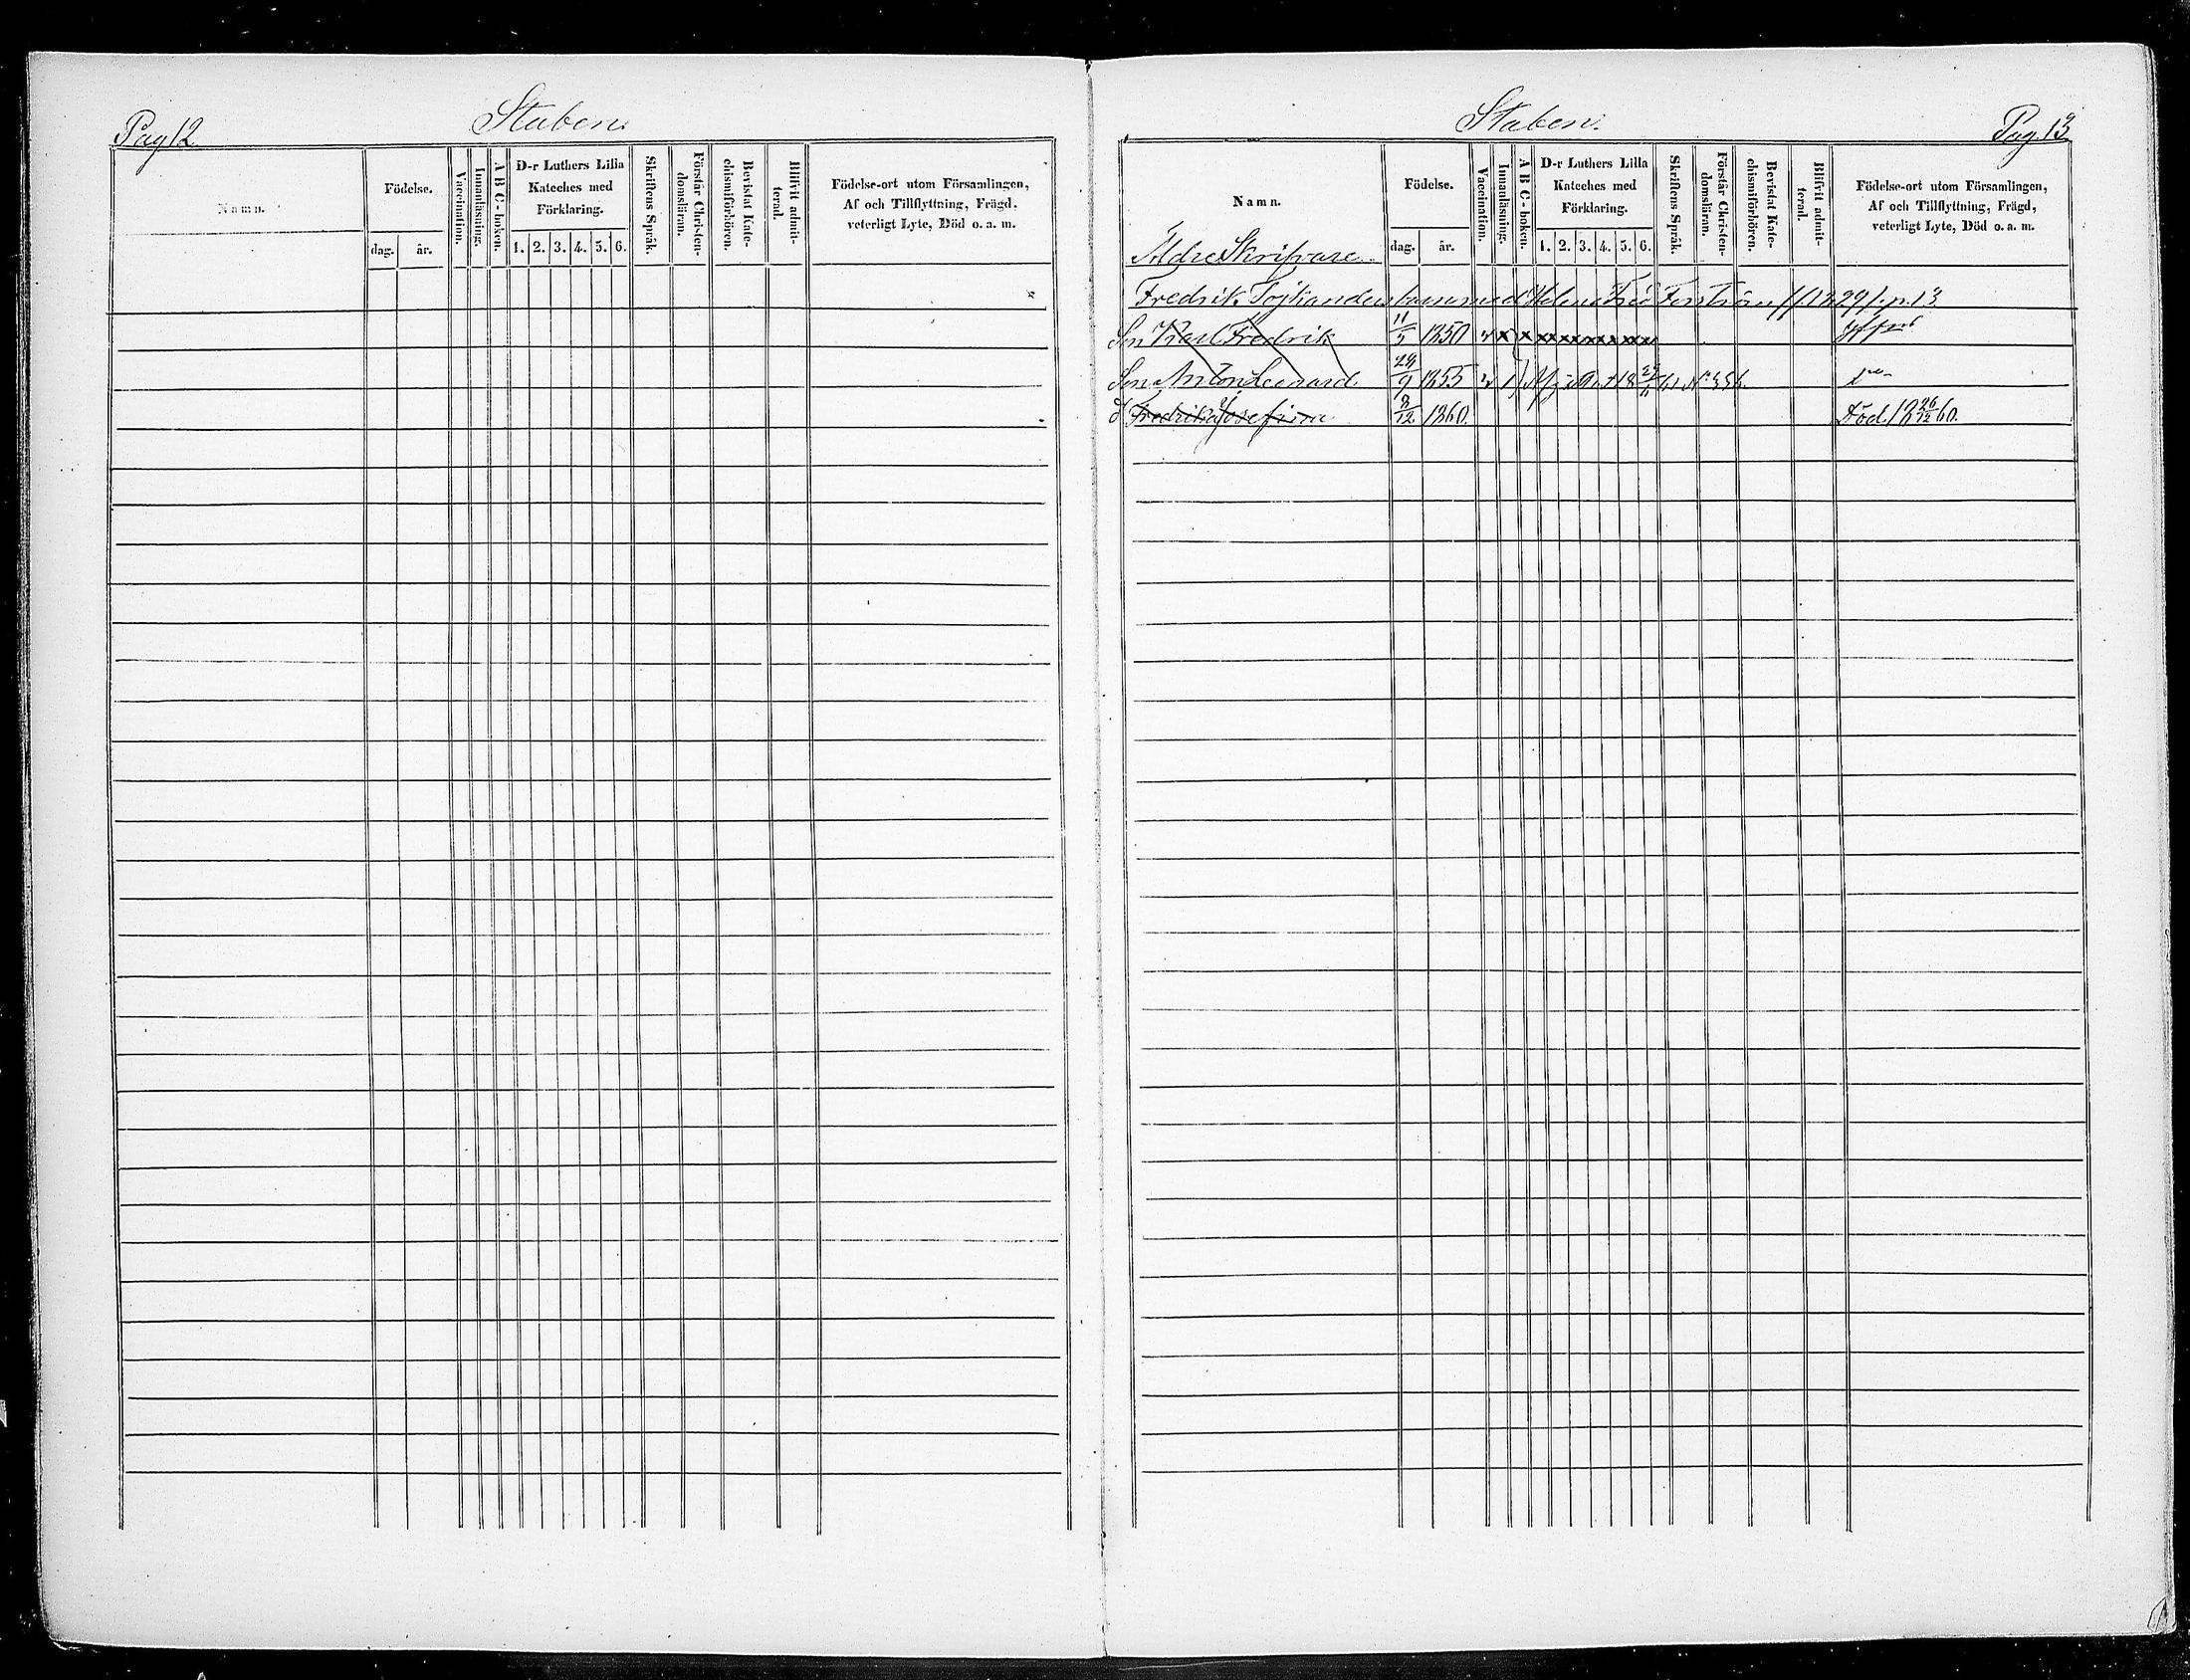 Pag 12
Staben.
Namn.
Födelse.
dag.
år.
Vaccination.
Innanläsning.
A B C-boken.
D-r Luthers Lilla
Kateches med
Förklaring.
1. 2. 3. 4. 5. 6.
Skriftens Språk.
Förstår Christen-
domsläran.
Bevistat Kate-
chismiförhören.
Blifvit admit-
terad.
Födelse-ort utom Församlingen,
Af och Tillflyttning, Frägd,
veterligt Lyte, Död o. a. m.
Staben.
Pag. 13
Namn.
Äldre Skrifvare
Födelse.
dag.
år.
Vaccination.
Innanläsning.
A B C-boken.
D-r Luthers Lilla
Kateches med
Förklaring.
1. 2. 3. 4. 5. 6.
Skriftens Språk.
Förstår Christen-
domsläran.
Bevistat Kate-
chismiförhören.
Blifvit admit-
terad.
Födelse-ort utom Församlingen,
Af och Tillflyttning, Frägd,
veterligt Lyte, Död o. a. m.
Fredrik med Helena Fred Forström 1829 p. 13
Son Karl Fredrik 11/5 1850 v x x x x x x x x
Son Anton Leonard 24/9 1855 v
d Fredrika Josefina 8/12 1860. Död 18 26/12 60.